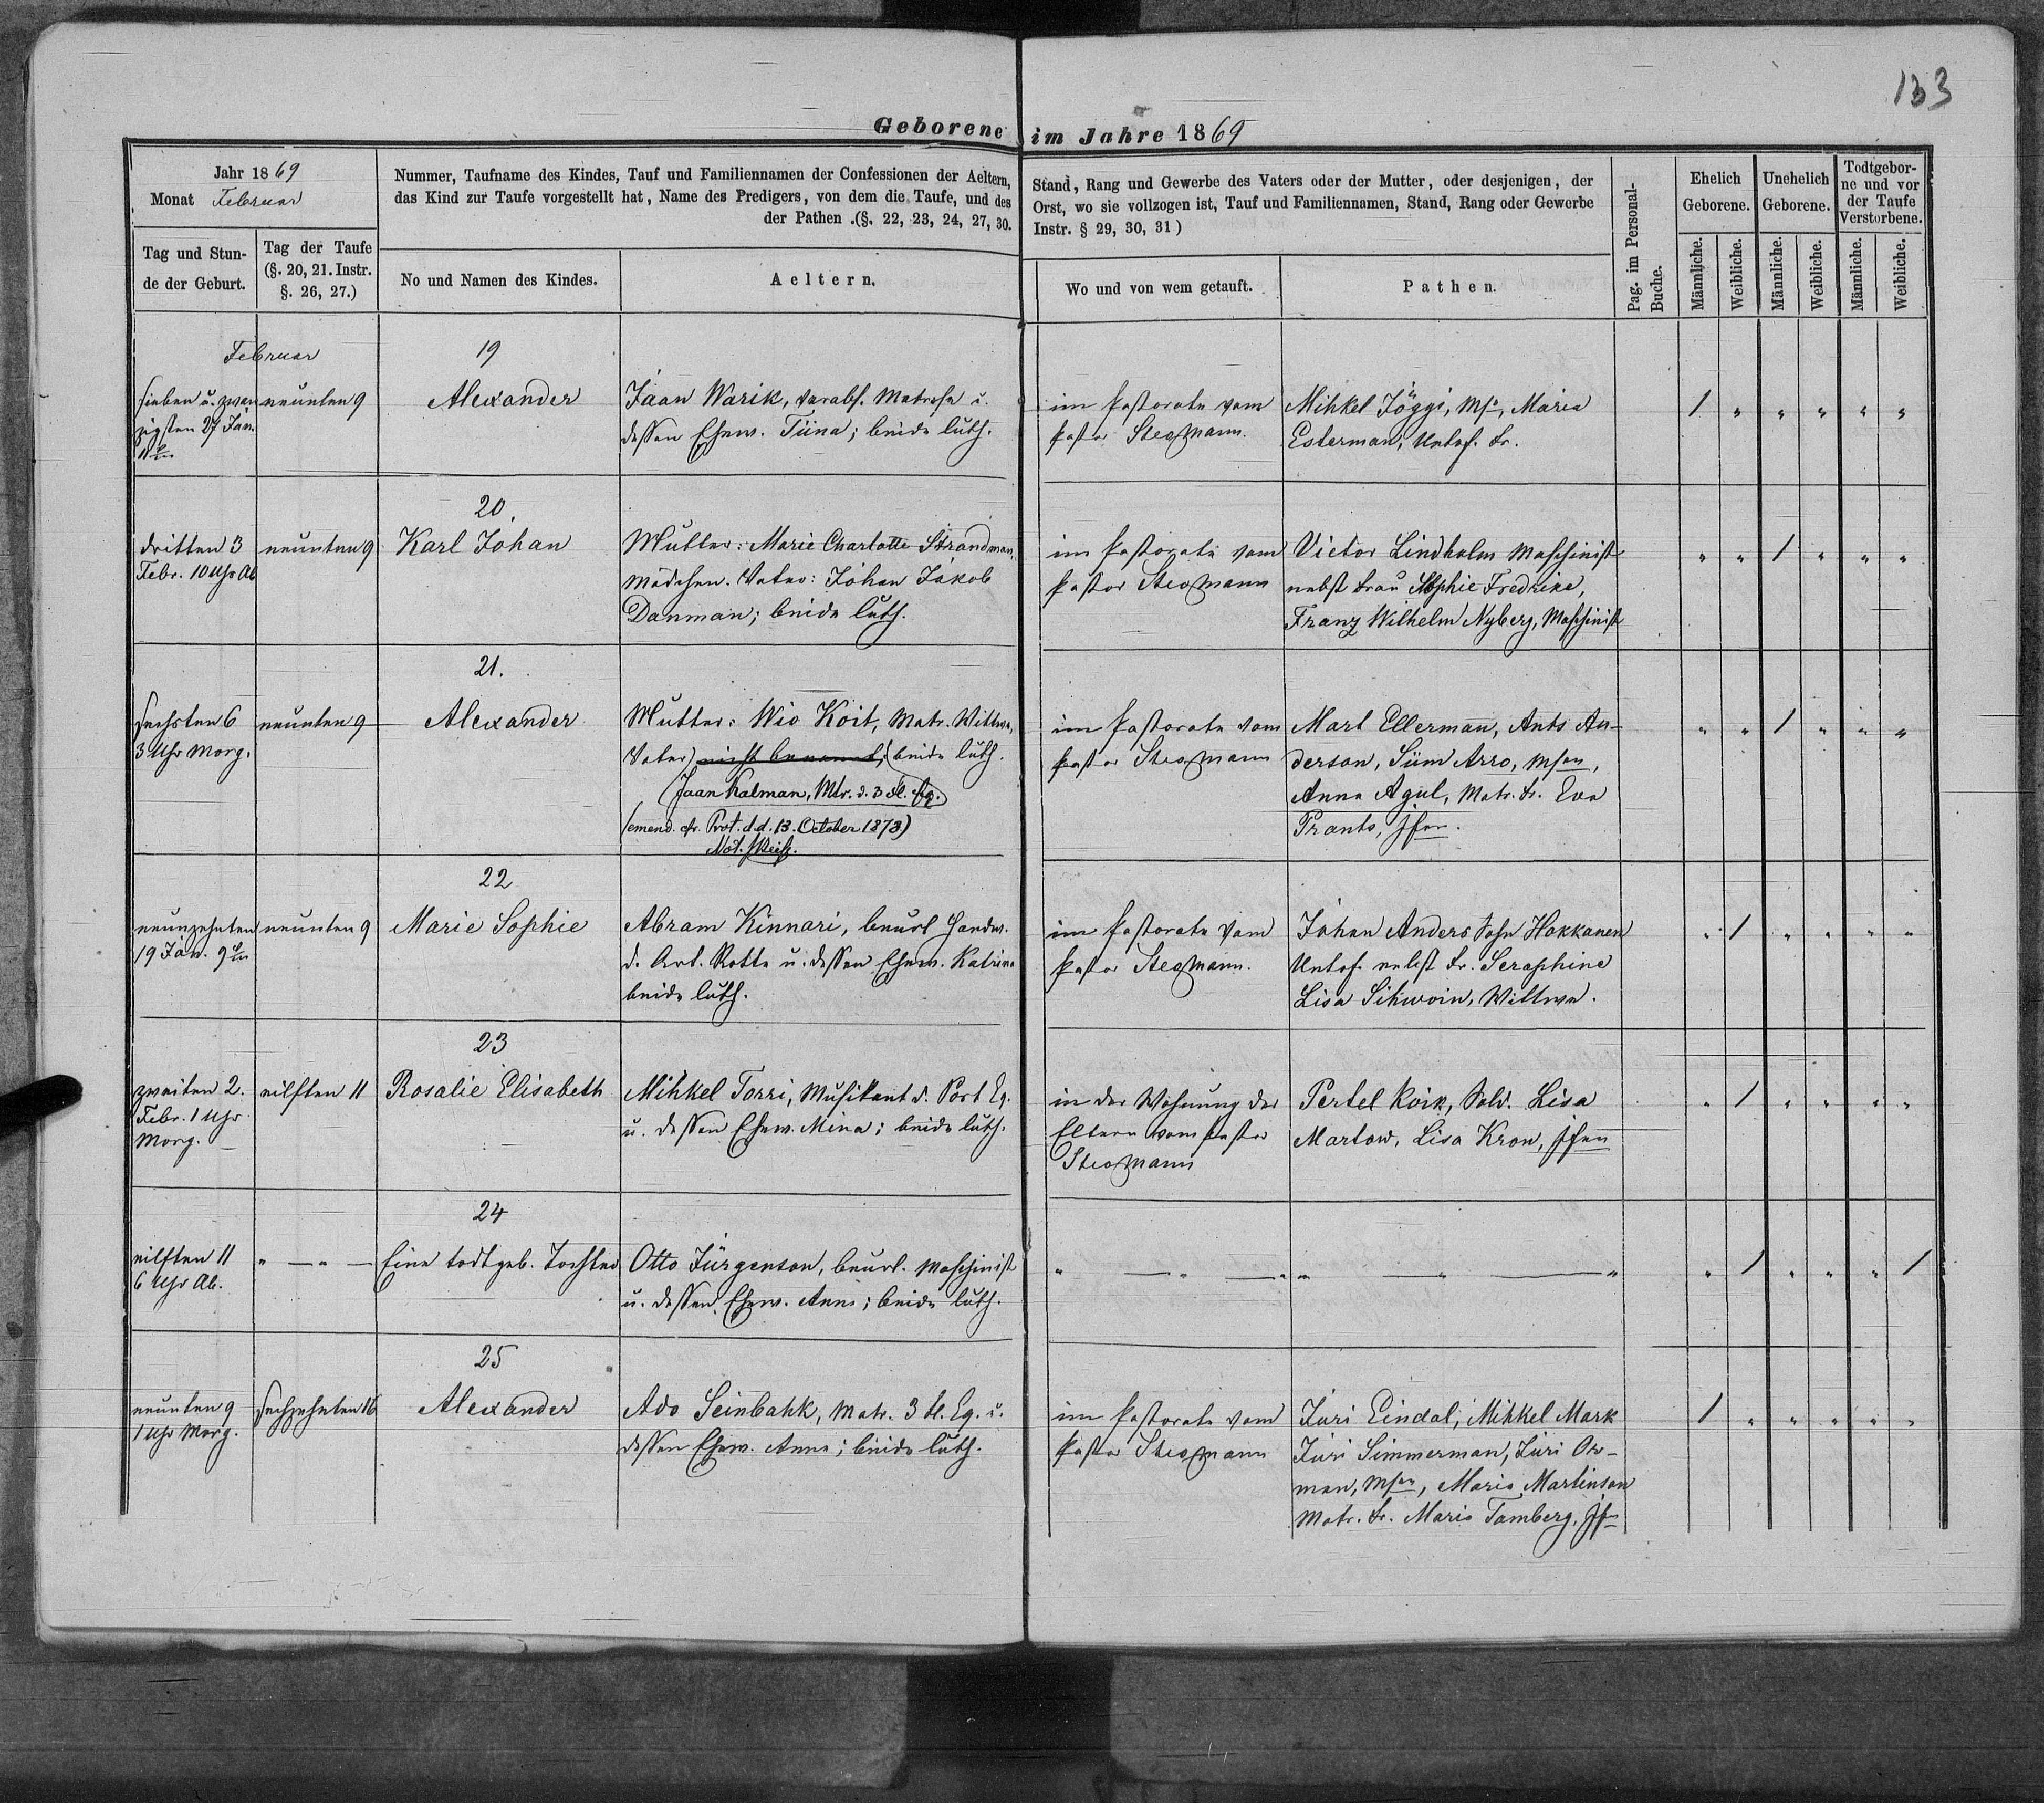 133
Geborene im Jahre 1869
Jahr 1869
Monat Februar
Nummer, Taufname des Kindes, Tauf und Familiennamen der Confessionen der Aeltern,
das Kind zur Taufe vorgestellt hat, Name des Predigers, von dem die Taufe, und des
der Pathen .(§. 22, 23, 24, 27, 30.
Stand, Rang und Gewerbe des Vaters oder der Mutter, oder desjenigen, der
Orst, wo sie vollzogen ist, Tauf und Familiennamen, Stand, Rang oder Gewerbe
Instr. § 29, 30, 31)
Tag und Stun-
de der Geburt.
Tag der Taufe
(§. 20, 21. Instr.
§. 26, 27.)
No und Namen des Kindes.
Aeltern.
Wo und von wem getauft.
Pathen.
Pag. im Personal-
Buche.
Ehelich
Geborene.
Unehelich
Geborene.
Todtgebor-
ne und vor
der Taufe
Verstorbene.
Männliche.
Weibliche.
Männliche.
Weibliche.
Männliche.
Weibliche.
Februar
19
sieben u. zwan
zigsten 27 Jan.
neunten 9
Alexander
Jaan Warik, verabs. Matrose u.
dessen Ehew. Tiina; beide luth.
im Pastorate vom
Pastor Stegmann.
Mihkel Jöggi, Maria
Esterman, Untof. Fr.
1 " " " " "
20.
dritten 3
Febr. 10 Uhr Ab
neunten 9
Karl Johan
Mutter: Marie Charlotte Strandman,
Mädchen. Vater: Johan Jakob
Danman; beide luth.
im Pastorate vom
Pastor Stegmann
Victor Lindholm Maschinist
nebst Frau Sophie Fredrike,
Franz Wilhelm Nyberg, Maschinist
" " 1 " " "
21.
sechsten 6
3 Uhr Morg.
neunten 9
Alexander
Mutter: Wio Koit, Matr. Wittwe,
Vater nicht benannt; beide luth.
(Jaan Kalman, Mtr. d. 3 Fl. Eq.)
(emend. cfr. Prot. d.d. 13. October 1873)
im Pastorate vom
Pastor Stegmann
Mart Ellerman, Ants An-
derson, Siim Arro,
Anna Agul, Matr. Fr. Eva
Prants, Jfr.
" " 1 " " "
22
neunzehnten
19 Jan.
neunten 9
Marie Sophie
Abram Kinnari, beurl Handw.
d. Art. Rotte u. dessen Ehew. Katrina
beide luth.
im Pastorate vom
Pastor Stegmann.
Johan Anders Sohn Hakkanen
Untof. nebst Fr. Seraphine
Lisa Sihwoin, Wittwe.
" 1 " " " "
23
zweiten 2.
Febr. 1 Uhr
Morg.
eilften 11
Rosalie Elisabeth
Mihkel Torri, Musikant d. Port Eq.
u. dessen Ehew. Mina; beide luth.
in der Wohnung der
Eltern vom Pastor
Stegmann
Pertel Koik, Sold. Lisa
Martow, Lisa Kron, Jfrn
" 1 " " " "
24
eilften 11
6 Uhr Ab.
" — " —
Eine todtgeb. Tochter
Otto Jürgenson, beurl. Maschinist
u. dessen Ehew. Anni; beide luth.
" — " — " " — " — "
" 1 " " " 1
25
neunten 9
1 Uhr Morg.
sechzehnten 16
Alexander
Ado Seinbahk, Matr. 3 Fl. Eq. u.
dessen Ehew. Anna; beide luth.
im Pastorate vom
Pastor Stegmann
Jüri Eindal, Mihkel Mark
Jüri Simmerman, Jüri Or-
man, Marie Martinson
Matr. Fr. Maria Tamberg, Jfr
1 " " " " "